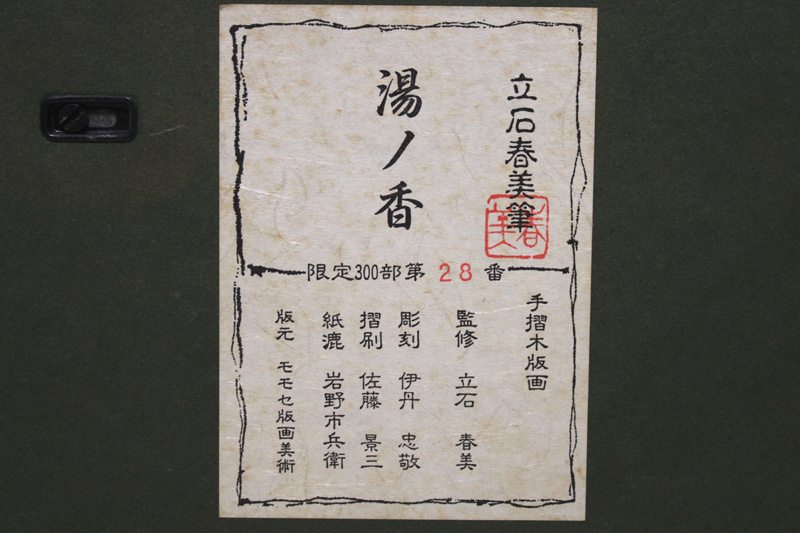 立石春美筆
春美
湯ノ香
限定300部第28番
手摺木版画
監修 立石 春美
彫刻 伊丹 忠敬
摺刷 佐藤 景三
紙漉 岩野市兵衛
版元 モモセ版画美術